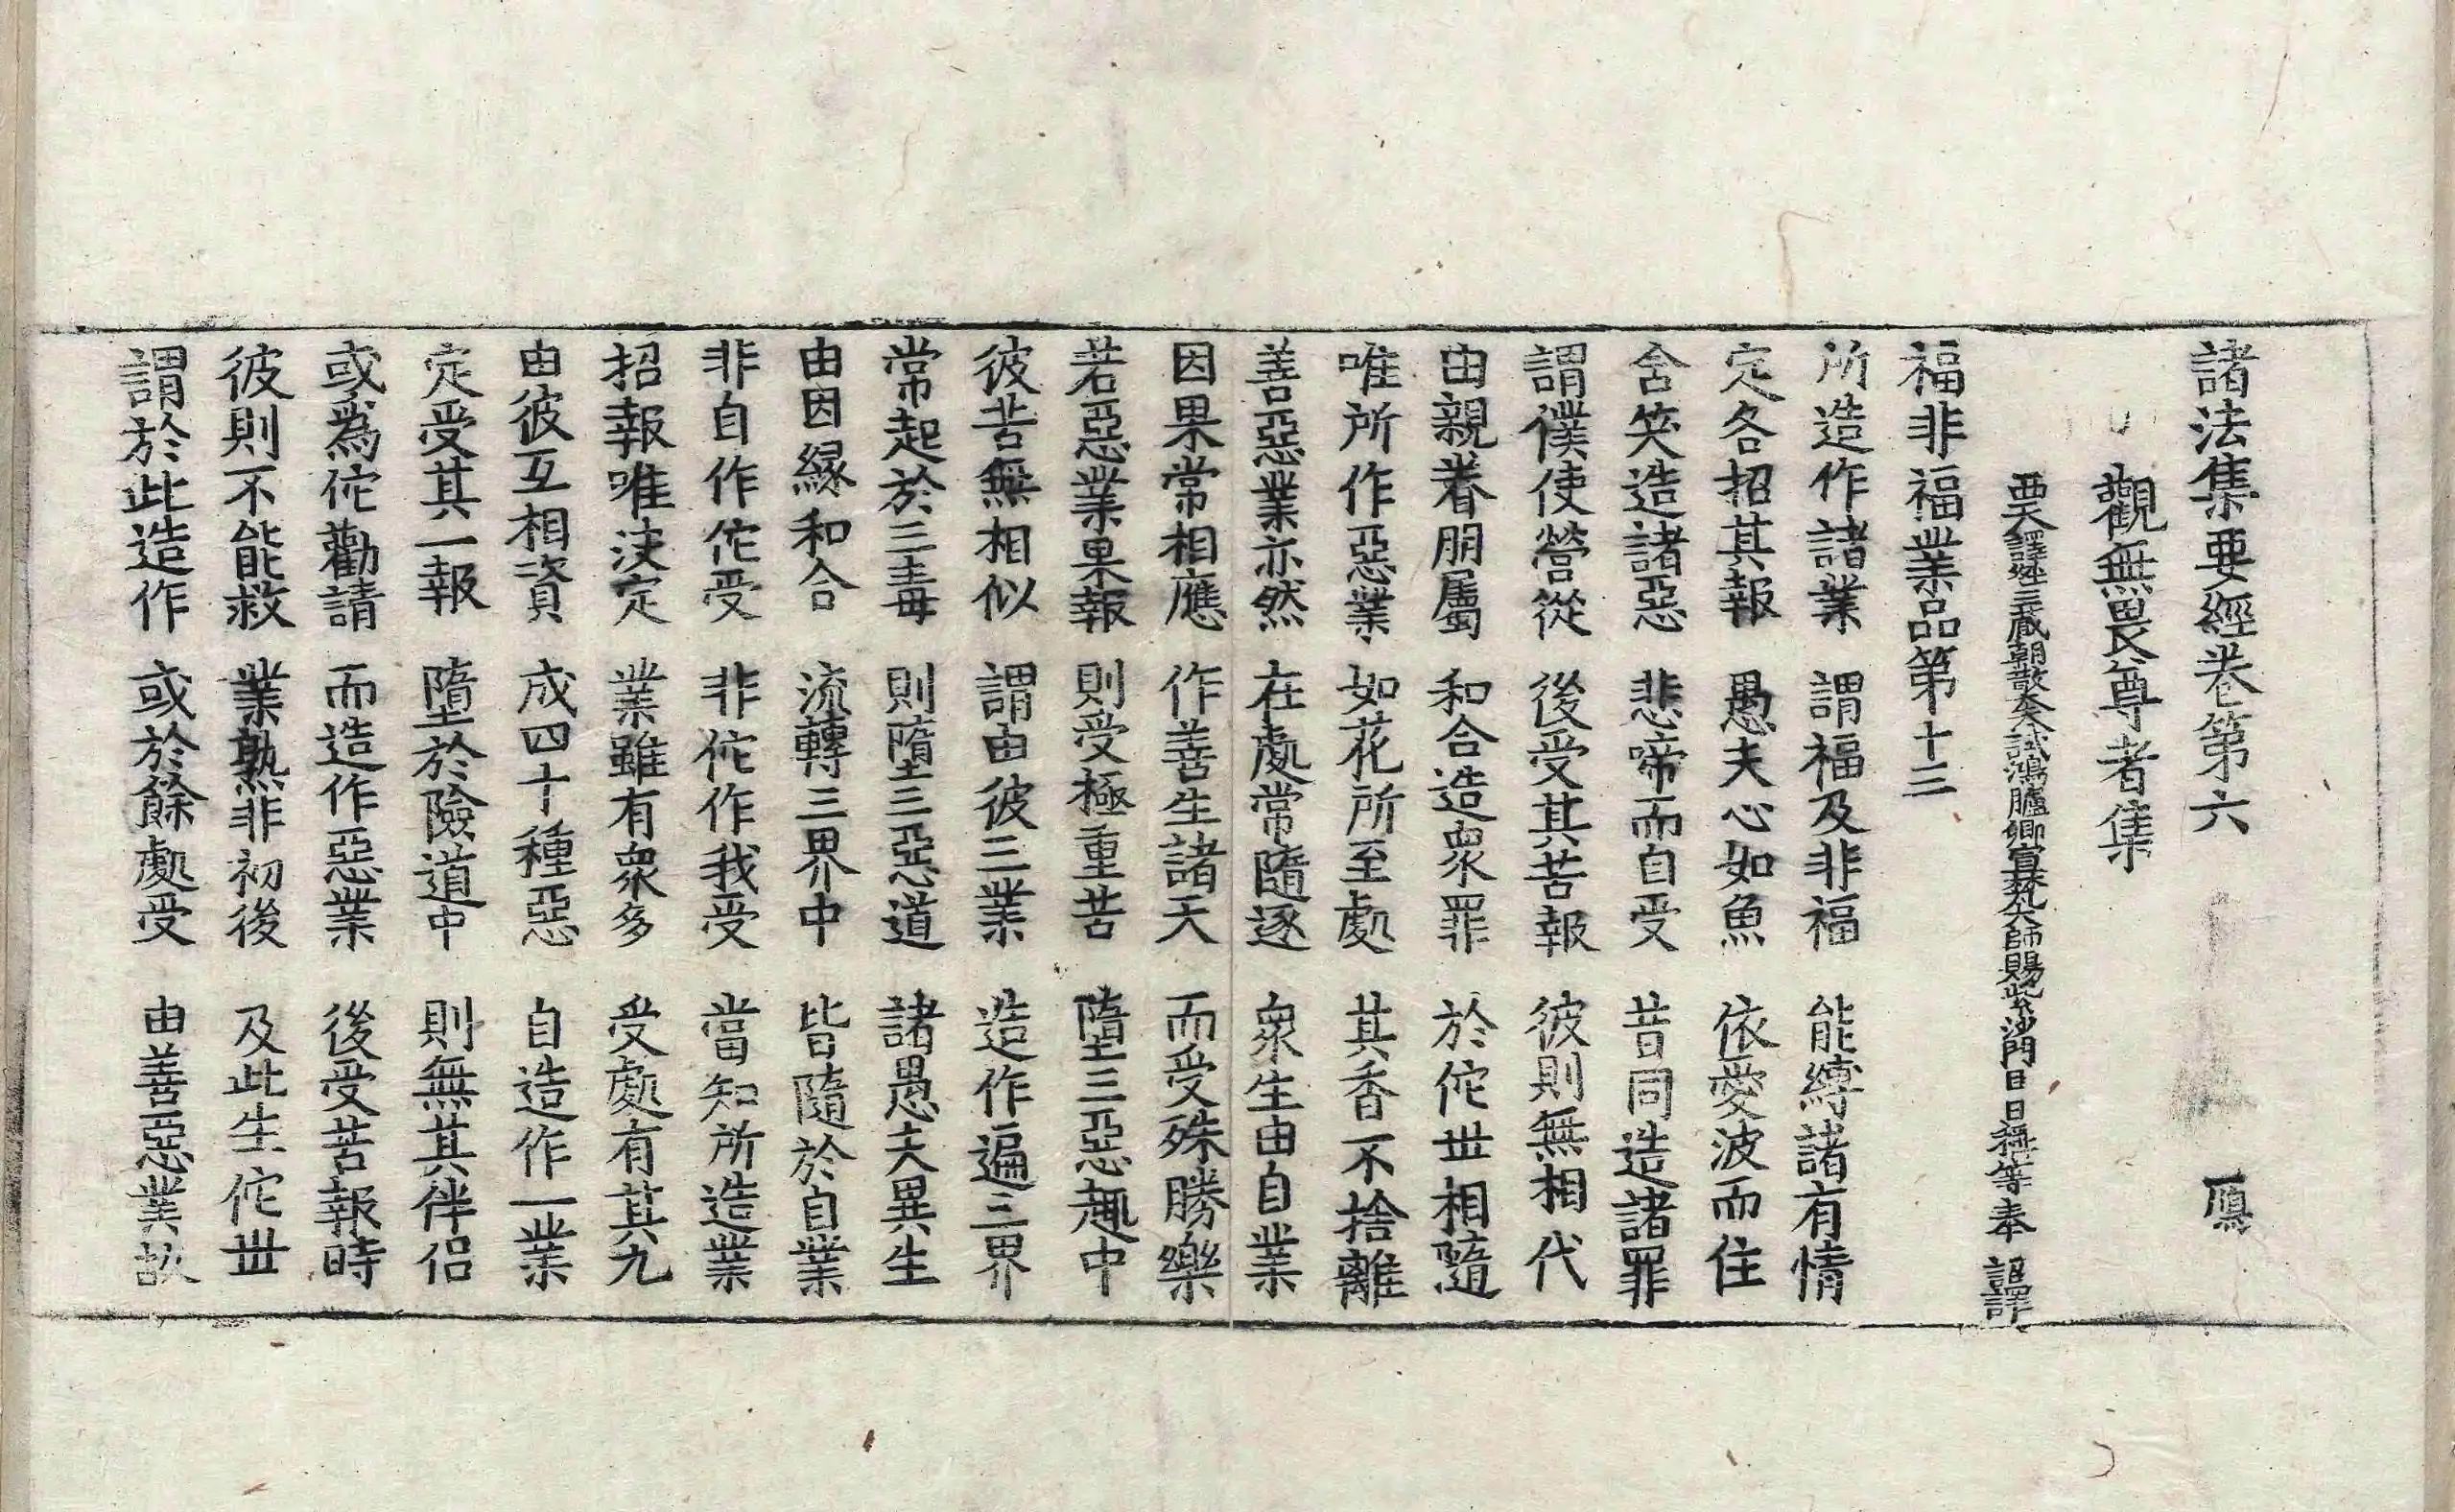 諸法集要經卷第六 鴈
觀無畏尊者集
西天譯經三藏朝散大夫試鴻臚卿宣梵大師賜紫沙門臣日稱等奉 詔譯
福非福業品第十三
所造作諸業 謂福及非福 能縛諸有情
定各招其報 愚夫心如魚 依愛波而住
含笑造諸惡 悲啼而自受 昔同造諸罪
謂僕使營從 後受其苦報 彼則無相代
由親眷朋屬 和合造衆罪 於佗世相隨
唯所作惡業 如花所至處 其香不捨離
善惡業亦然 在處常隨逐 衆生由自業
因果常相應 作善生諸天 而受殊勝樂
若惡業果報 則受極重苦 墮三惡趣中
彼苦無相似 謂由彼三業 造作遍三界
常起於三毒 則墮三惡道 諸愚夫異生
由因緣和合 流轉三界中 皆隨於自業
非自作佗受 非佗作我受 當知所造業
招報唯決定 業雖有衆多 受處有其九
由彼互相資 成四十種惡 自造作一業
定受其一報 墮於險道中 則無其伴侣
或爲佗勸請 而造作惡業 後受苦報時
彼則不能救 業熟非初後 及此生佗世
謂於此造作 或於餘處受 由善惡業故